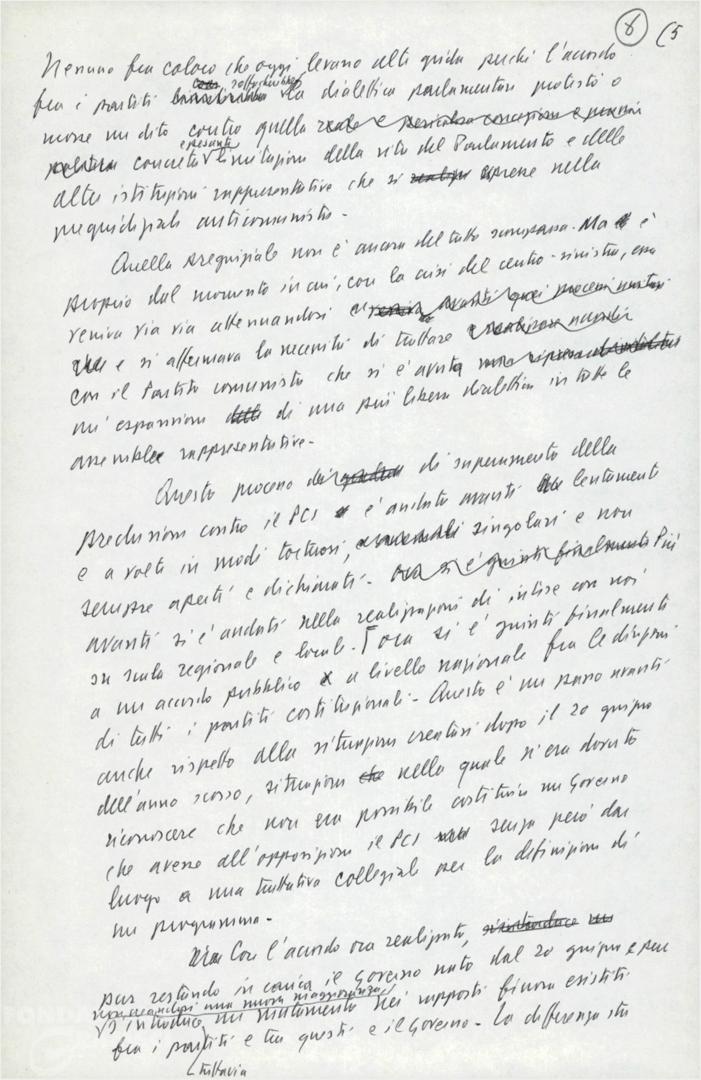 8 (5
Nessuno fra coloro che oggi levano alte grida perché l'accordo
fra i partiti soffocherebbe la dialettica parlamentare protestò o
mosse un dito contro quella reale e pericolosa concezione e
concreta e pesante limitazione della vita del Parlamento e delle
altre istituzioni rappresentative che si espresse nella
pregiudiziale anticomunista.
Quella pregiudiziale non è ancora del tutto scomparsa. Ma è
proprio dal momento in cui, con la crisi del centro-sinistra, essa
veniva via via attenuandosi
e si affermava la necessità di trattare
con il Partito comunista che si è avuta
un'espansione di una più libera dialettica in tutte le
assemblee rappresentative.
Questo processo di superamento della
preclusione contro il PCI è andato avanti lentamente
e a volte in modi tortuosi, singolari e non
sempre aperti e dichiarati. ora si è giunti finalmente Più
avanti si è andati nella realizzazione di intese con noi
su scala regionale e locale. Ora si è giunti finalmente
a un accordo pubblico a livello nazionale fra le direzioni
di tutti i partiti costituzionali. Questo è un passo avanti
anche rispetto alla situazione creatasi dopo il 20 giugno
dell'anno scorso, situazione che nella quale si era dovuto
riconoscere che non era possibile costituire un Governo
che avesse all'opposizione il PCI senza però dar
luogo a una trattativa collegiale per la definizione di
un programma.
Con l'accordo ora realizzato,
pur restando in carica il Governo nato dal 20 giugno e pur
non creandosi una nuova maggioranza
si introduce tuttavia un mutamento nei rapporti finora esistiti
fra i partiti e tra questi e il Governo. La differenza sta